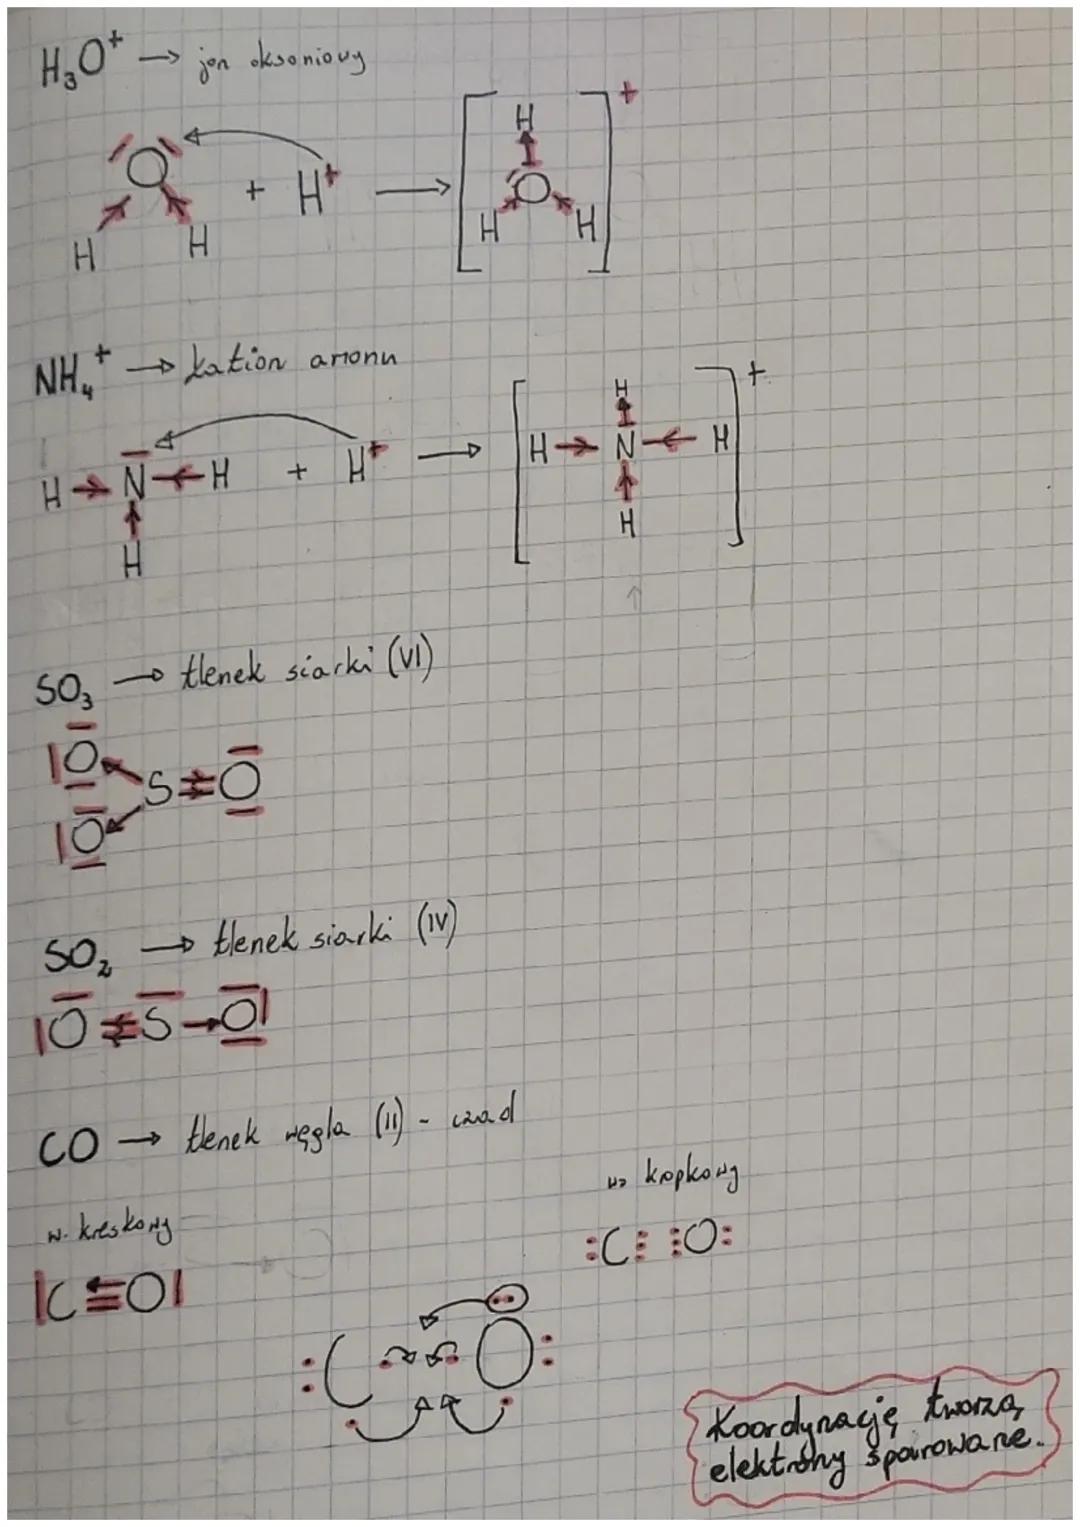 H₃O⁺ → jon oksoniowy
O + H⁺ → [H O H H]⁺
H H
NH₄⁺ → kation amonu
H → N ← H + H⁺ → [H → N ← H]⁺
H H H
SO₃ → tlenek siarki (VI)
|O
S O
|O
SO₂ → tlenek siarki (IV)
|O S → O|
CO → tlenek węgla (II) - czad
w. kreskowy
w. kropkowy
|C≡O|
:C⋮ ⋮O:
:C O:
Koordynację tworzą
elektrony sparowane.